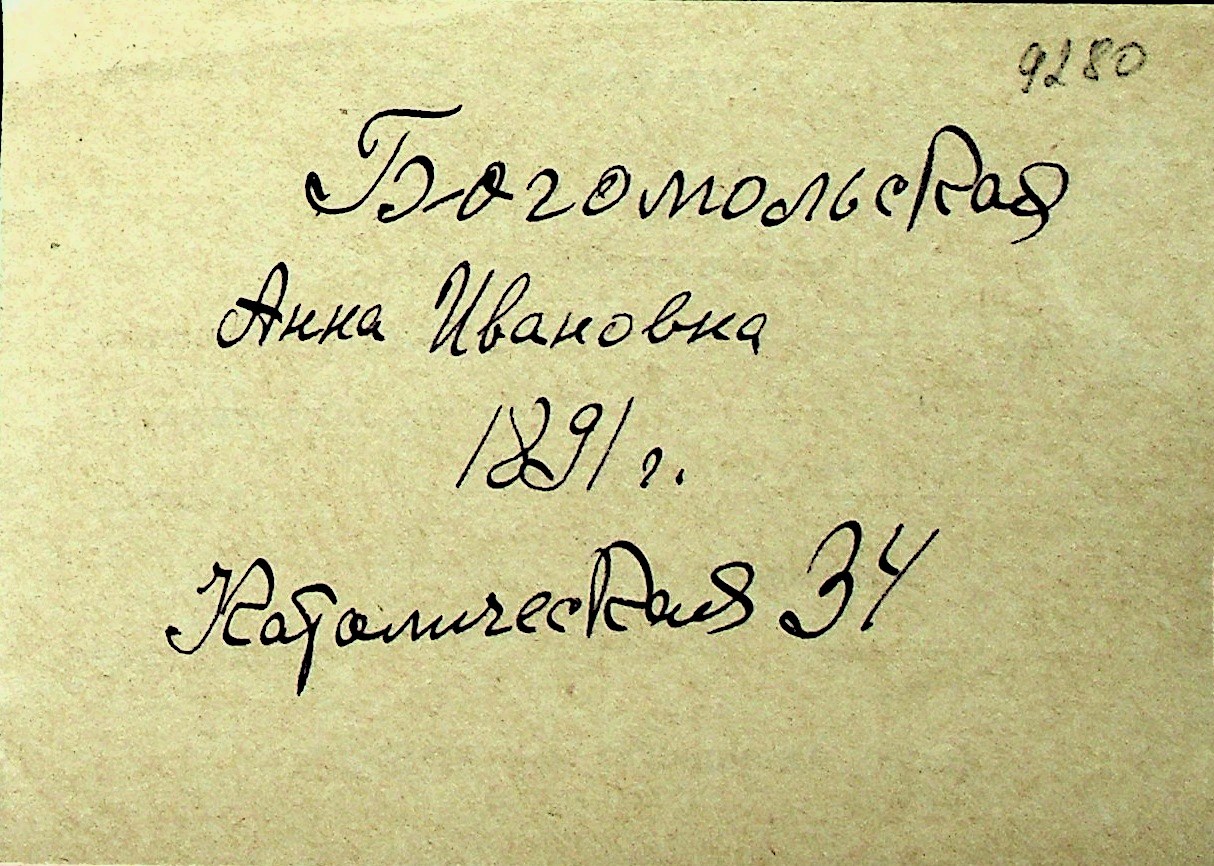 9280
Богомольская
Анна Ивановна
1891 г.
Католическая 34